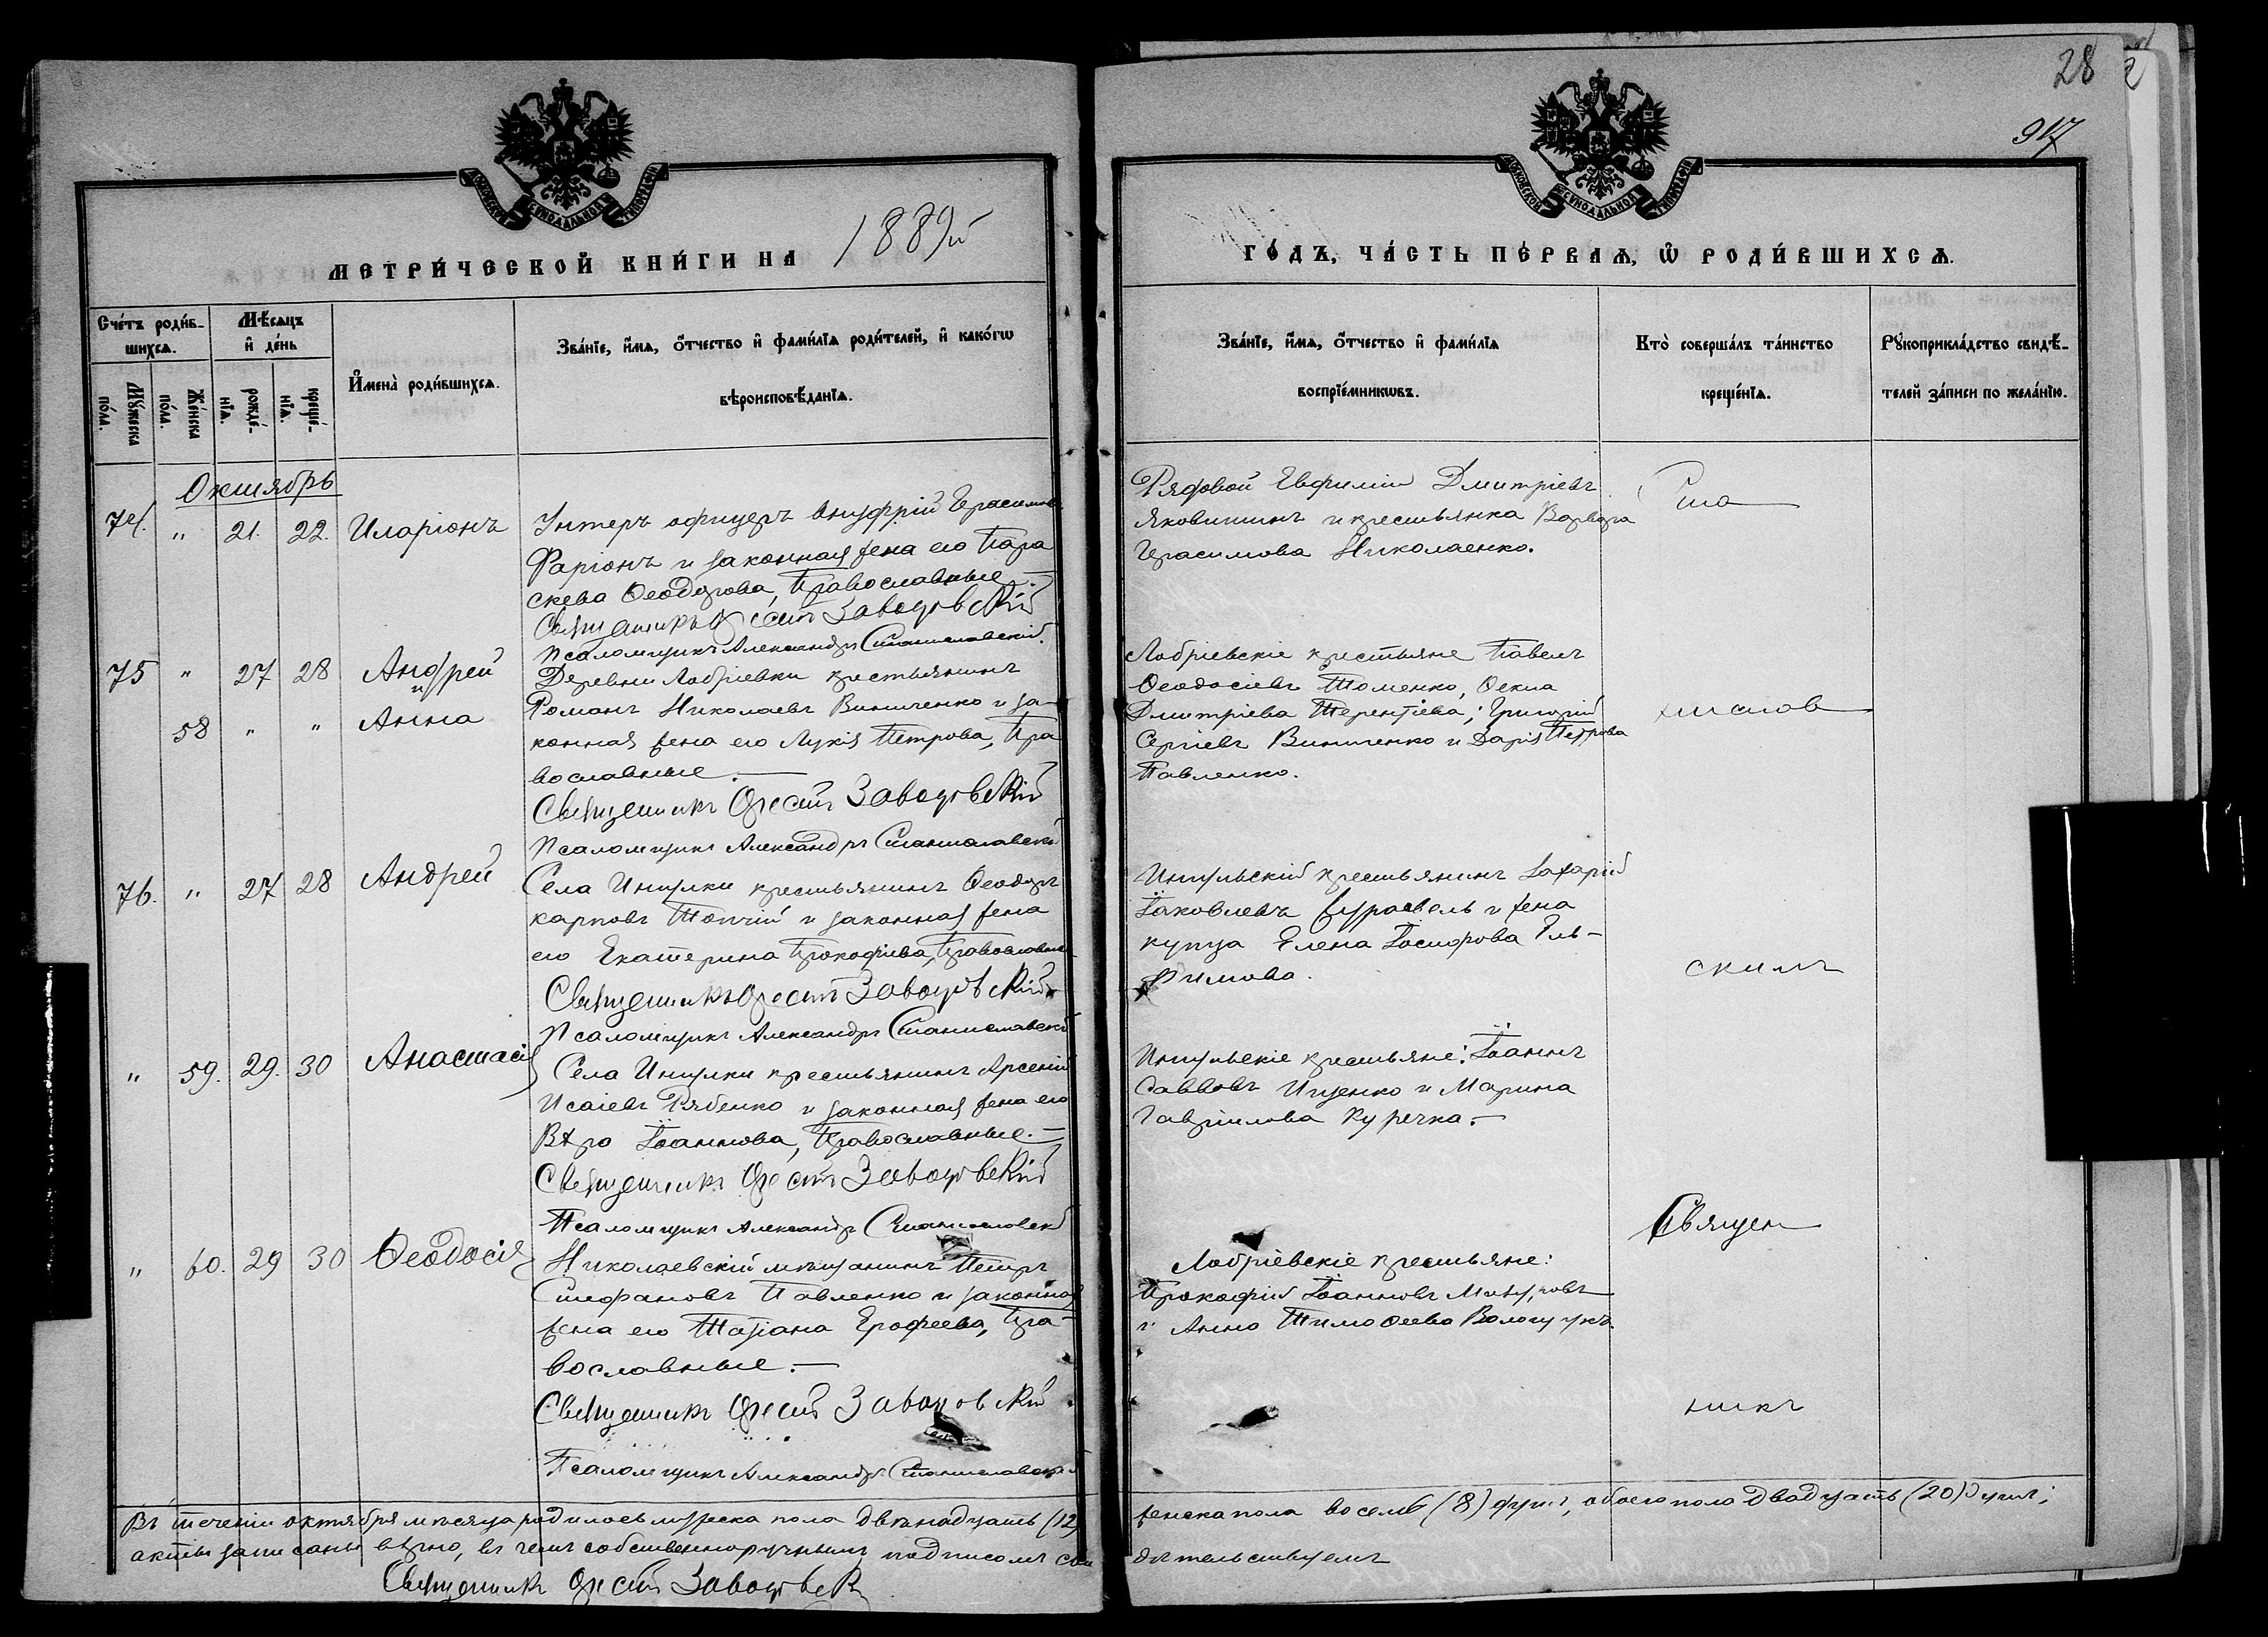 28
917
МОСКОВСКОЙ СѴНОДАЛЬНОЙ ТИПОГРАФІИ
МОСКОВСКОЙ СѴНОДАЛЬНОЙ ТИПОГРАФІИ
МЕТРИ́ЧЕСКОЙ КНИ́ГИ НА 1889й
ГО́ДЪ, ЧА́СТЬ ПЕ́РВАѦ, Ѡ҆ РОДИ́ВШИХСѦ.
Сче́тъ роди́вшихсѧ.
Мѣ́сѧцъ и҆ де́нь
Мꙋ́жеска по́ла.
Же́нска по́ла.
рожде́нїѧ.
креще́нїѧ.
И҆мена̀ роди́вшихсѧ.
Зва́нїе, и҆́мѧ, ѻ҆́тчество и҆ фами́лїѧ роди́телей, и҆ како́гѡ
вѣроисповѣ́данїѧ.
Зва́нїе, и҆́мѧ, ѻ҆́тчество и҆ фами́лїѧ
воспрїе́мникѡвъ.
Кто̀ соверша́лъ та́инство
креще́нїѧ.
Рꙋкоприкла́дство свидѣ́телей за́писи по жела́нїю.
Октябрь
74. " 21. 22. Иларіонъ
Унтеръ офицеръ Онуфрій Герасимовъ
Фаріонъ и законная жена его Пара
скева Ѳеодорова, Православные.
Священникъ Орестъ Заводовскій
Псаломщикъ Александръ Станиславскій.
Рядовой Евфимій Дмитріевъ
Яковишинъ и крестьянка Варвара
Герасимова Николаенко.
75 " 27 28 Андрей
и
58 " " Анна
Деревни Лобріевки крестьянинъ
Романъ Николаевъ Винниченко и за
конная жена его Лукія Петрова, Пра
вославные.
Священникъ Орестъ Заводовскій
Псаломщикъ Александръ Станиславскій
Лобріевскіе крестьяне Павелъ
Ѳеодосіевъ Томенко, Ѳекла
Дмитріева Терентіева; Григорій
Сергіевъ Винниченко и Дарія Петрова
Павленко.
76. " 27 28 Андрей
Села Ингулки крестьянинъ Ѳеодоръ
Карповъ Топчій и законная жена
его Екатерина Прокофіева, Православные
Священникъ Орестъ Заводовскій
Псаломщикъ Александръ Станиславскій
Ингульскій крестьянинъ Захарій
Іаковлевъ Журавель и жена
купца Елена Іосифова Ель-
Фимова.
скимъ
" 59. 29. 30 Анастасія
Села Ингулки крестьянинъ Арсеній
Исаіевъ Рябенко и законная жена его
Вѣра Іоаннова, Православные.
Священникъ Орестъ Заводовскій
Псаломщикъ Александръ Станиславскій
Ингульскіе крестьяне: Іоаннъ
Саввовъ Ищенко и Марина
Гавріилова Куречка.
Священ
" 60. 29 30 Ѳеодосія
Николаевскій мѣщанинъ Петръ
Стефановъ Павленко и законная
жена его Татіана Ерофеева, Пра-
вославные.
Священникъ Орестъ Заводовскій
Псаломщикъ Александръ Станиславскій
Лобріевскіе крестьяне:
Прокофій Іоанновъ
и Анна Тимоѳеева
никъ
Въ теченіи октября мѣсяца родилось мужеска пола двѣнадцать (12)
женска пола восемь (8) душъ, обоего пола двадцать (20) душъ;
акты записаны вѣрно, въ чемъ собственноручнымъ подписомъ сви
дѣтельствуемъ
Священникъ Орестъ Заводовск